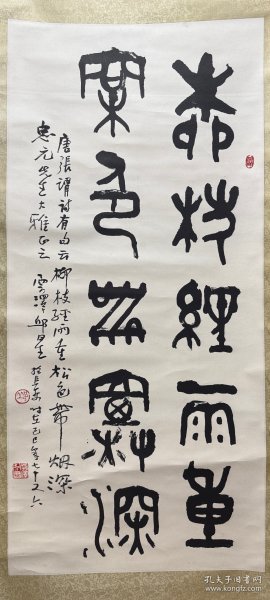 柳枝經雨重
松色帶煙深
唐張謂詩有句云柳枝經雨重松色帶烟深
惠元先生大雅正之
雲嶂邱星 於長安 時在己巳年七十又六
孔夫子旧书网